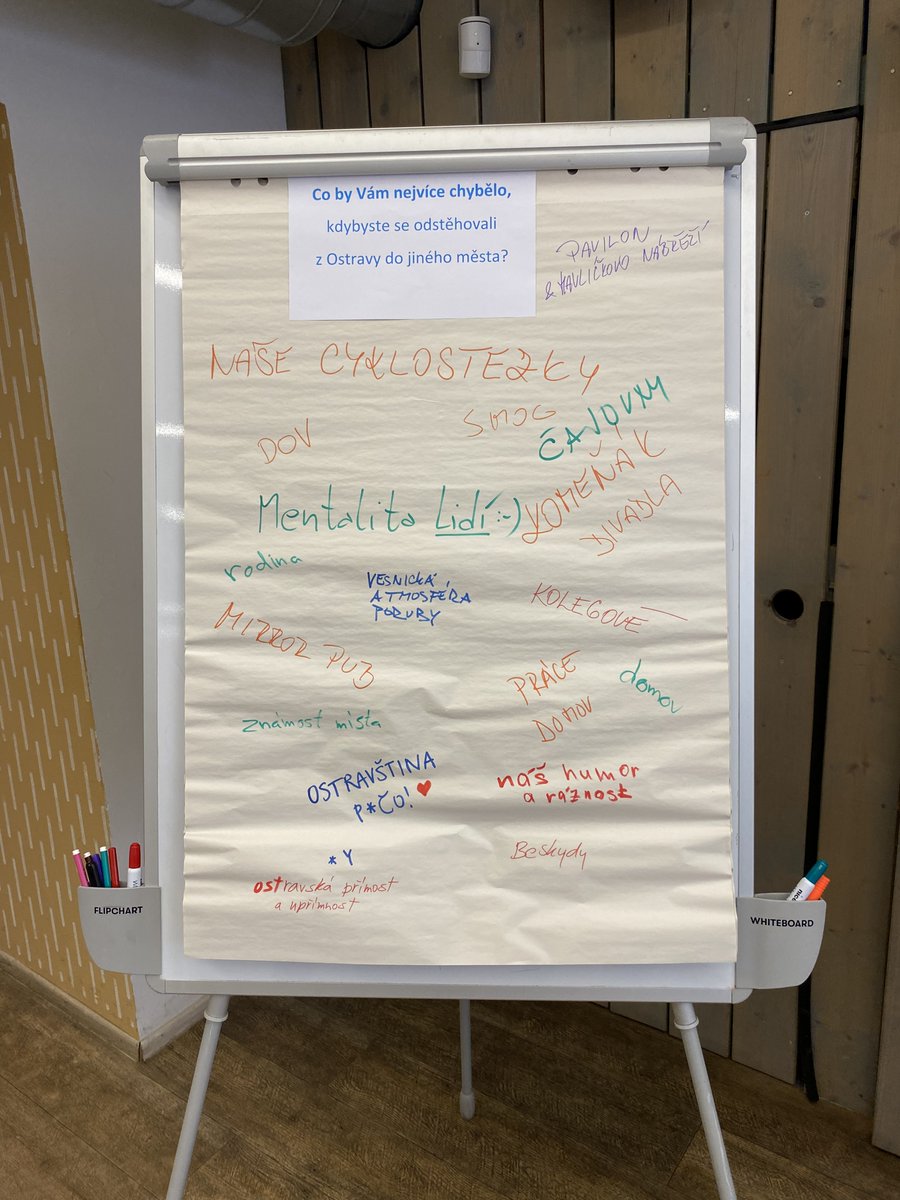 Co by Vám nejvíce chybělo,
kdybyste se odstěhovali
z Ostravy do jiného města?
PAVILON
& HAVLÍČKOVO NÁBŘEŽÍ
NAŠE CYKLOSTEZKY
SMOG
ČAJOVNY
DOV
KOMEŇÁK
DIVADLA
Mentalita Lidí :-)
rodina
VESNICKÁ
ATMOSFÉRA
PORUBY
KOLEGOVÉ
MIRROR PUB
PRÁCE
domov
DOMOV
známost místa
OSTRAVŠTINA
P*ČO! ♥
náš humor
a ráznost
* Y
Beskydy
ostravská přímost
a upřímnost
FLIPCHART
WHITEBOARD